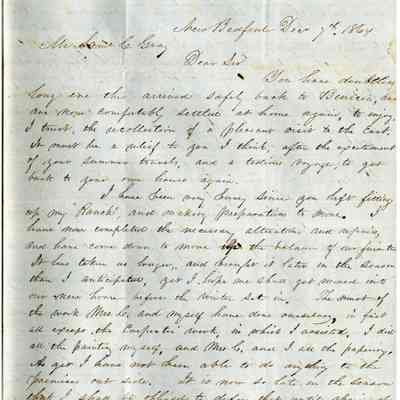 New Bedford Dec 7th. 1864
Mr C Gray
Dear Sir
You have doubtless
long ere this arrived safely back to Benicia, and
are now comfortably settled at home again, to enjoy
I trust, the recollection of a pleasant visit to the East.
It must be a relief to you I think, after the excitement
of your summer travels, and a tedious voyage, to get
back to your own house again.
I have been very busy since you left fitting
up my "Ranch", and making preparations to move. I
have now completed the necessary alterations and repairs,
and have come down to move the balance of our furniture
It has taken us longer, and brought it later in the season
than I anticipated, yet I hope we shall get moved into
our new home before the winter set in. The most of
the work Mrs C. and myself have done ourselves, in fact
all except the Carpenter work, in which I assisted. I did
all the painting myself, and Mrs C. and I all the papering.
As yet I have not been able to do anything to the
premises out side. It is now so late in the season
that I shall be obliged to defer that until spring